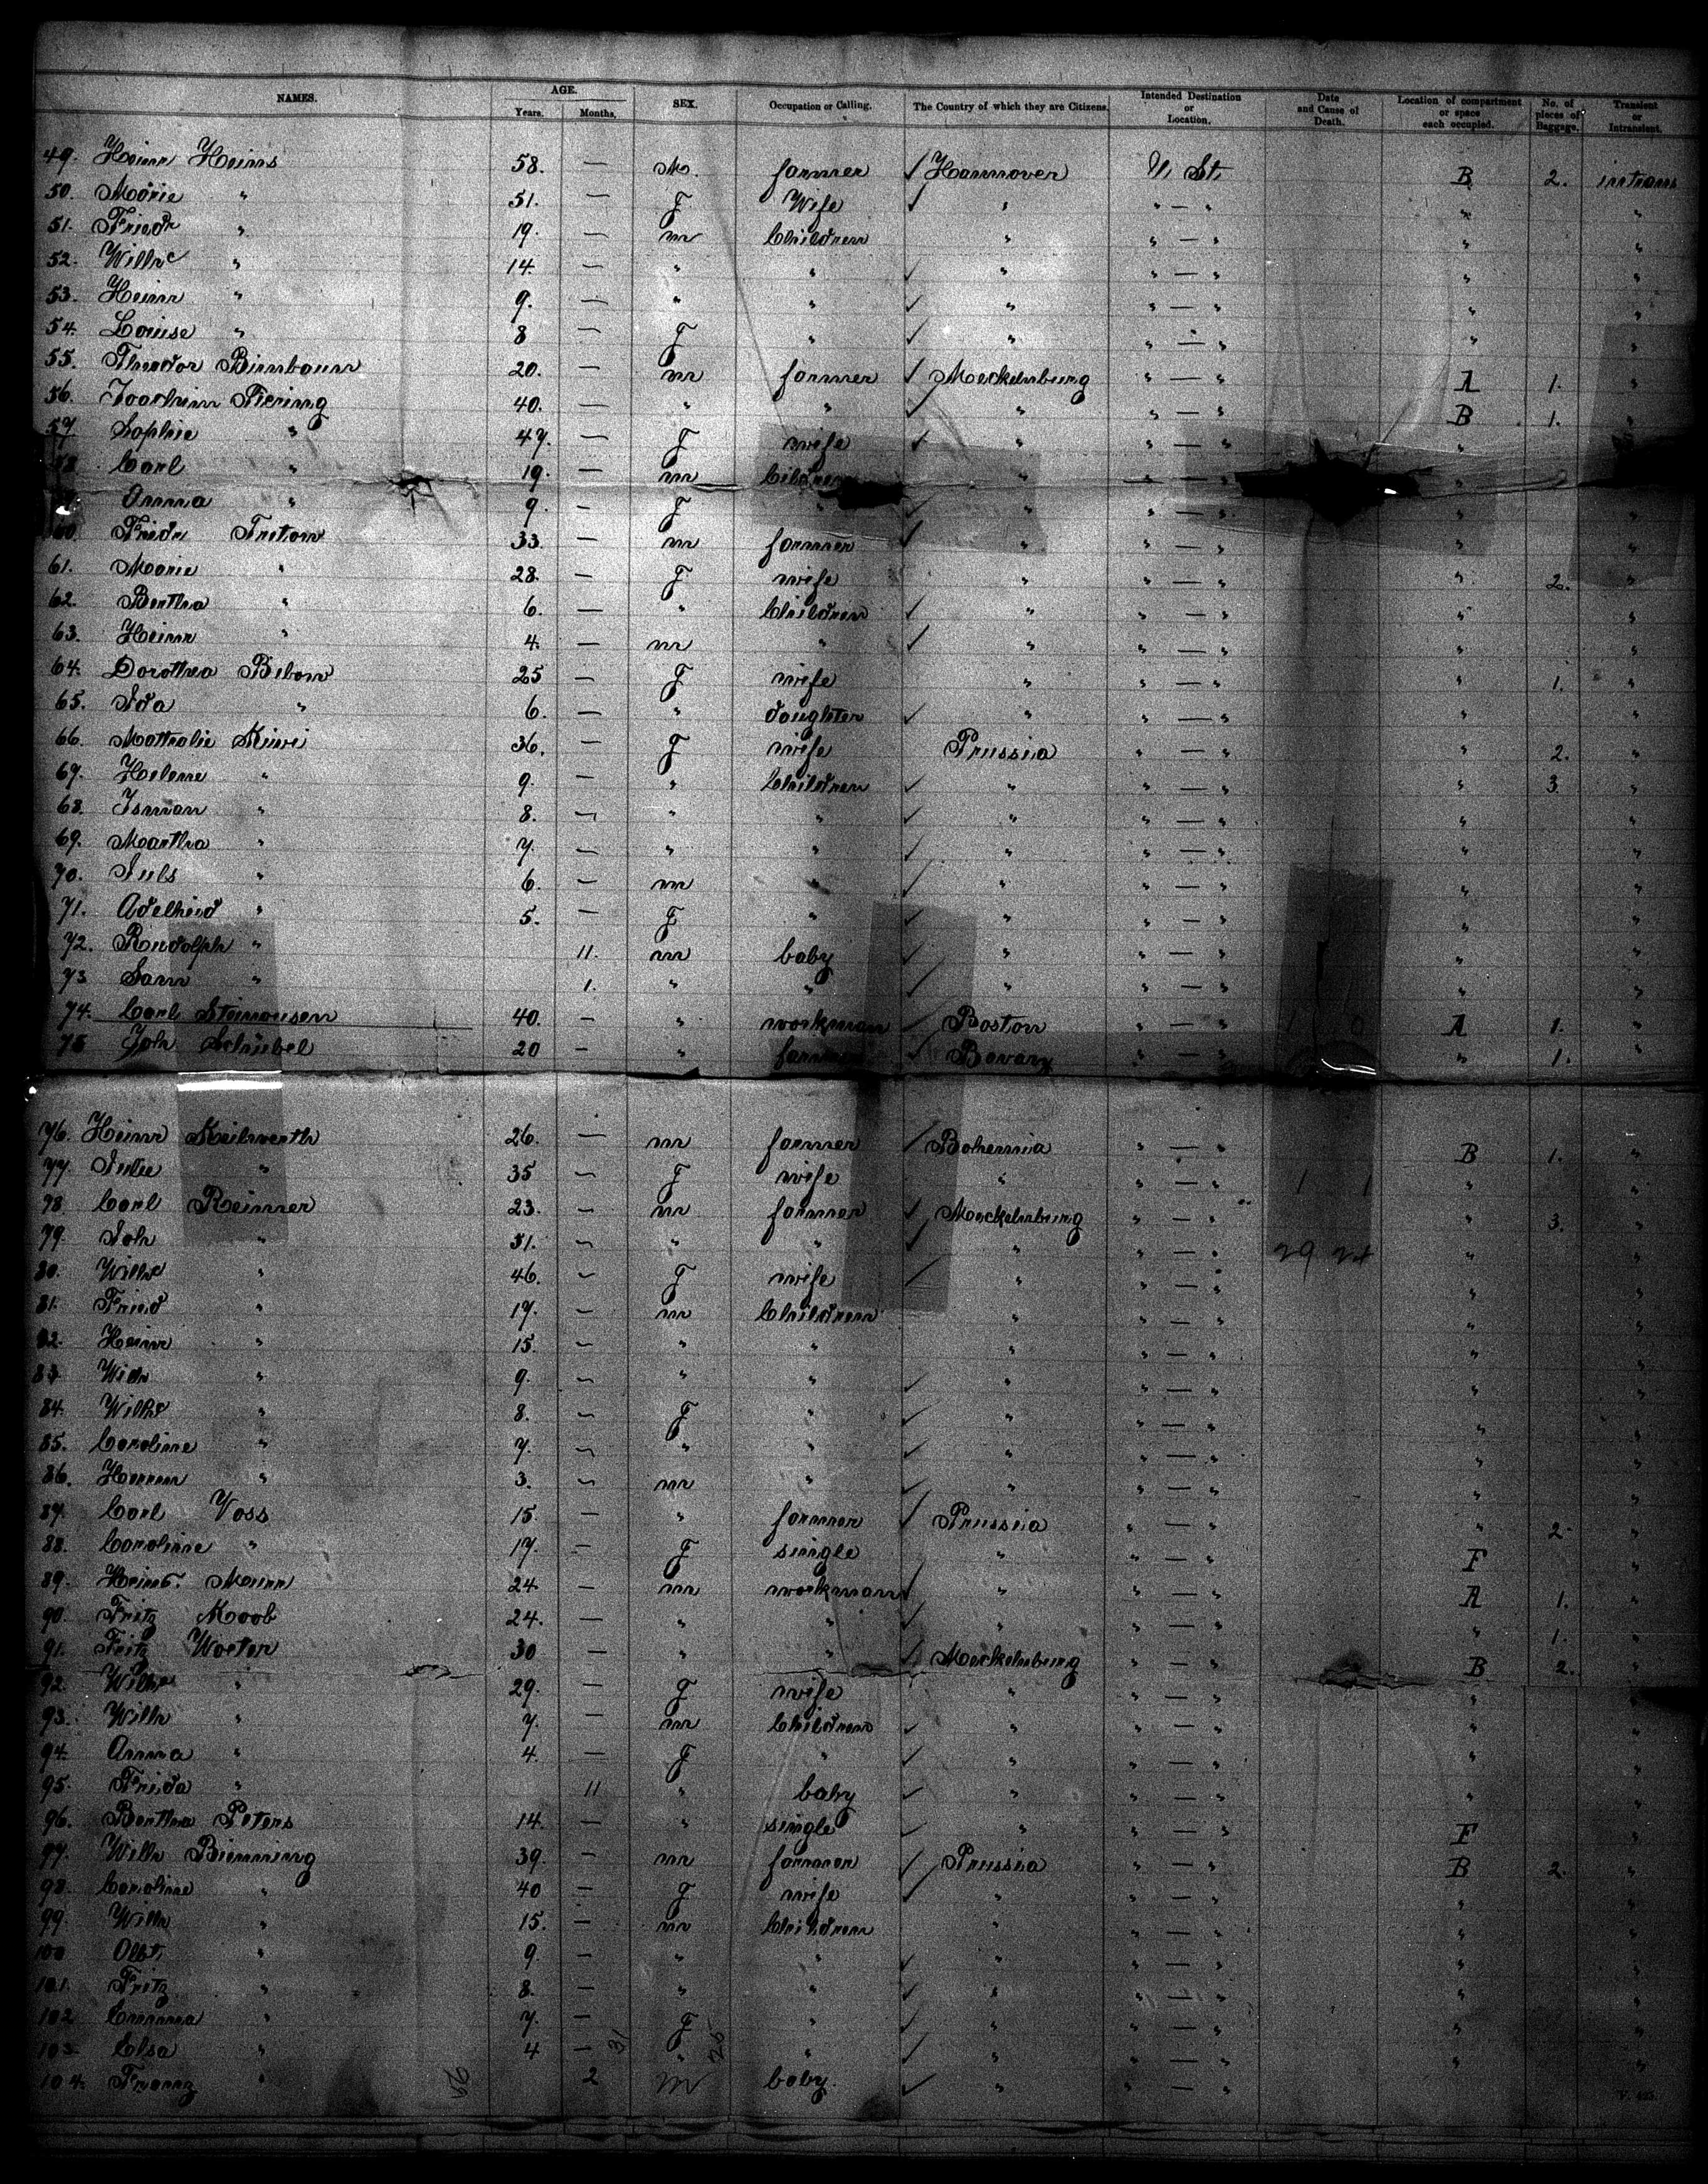 NAMES. AGE. Years. Months. SEX. Occupation or Calling. The Country of which they are Citizens. Intended Destination or Location. Date and Cause of Death. Location of compartment or space each occupied. No. of pieces of Baggage. Transient or Intransient.
49. Heinr Heins 58. — M. farmer ✓ Hannover U. St. B 2. intrans
50. Marie " 51. — F Wife ✓ " " — " " "
51. Friedr " 19. — m Children " " — " " "
52. Wilhe " 14. — " " ✓ " " — " " "
53. Heinr " 9. — " " ✓ " " — " " "
54. Louise " 8 — F " ✓ " " — " " "
55. Theodor Birnbaum 20. — m farmer ✓ Mecklenburg " — " A 1. "
56. Joachim Piering 40. — " " ✓ " " — " B 1. "
57 Sophie " 47. — F wife ✓ " " — " "
58 Carl " 19. — m " " — " "
59 Anna " 9. — F " ✓ " " — " " "
60. Friedr 33. — m farmer ✓ " " — " " "
61. Marie " 28. — F wife " " — " " 2. "
62. Bertha " 6. — " Children ✓ " " — " " "
63. Heinr " 4. — m " ✓ " " — " " "
64. Dorothea Bibow 25 — F wife " " — " " 1. "
65. Ida " 6. — " daughter ✓ " " — " " "
66. Nathalie 36. — F wife Prussia " — " " 2. "
67. Helene " 9. — " Children ✓ " " — " " 3. "
68. Isman " 8. — " " ✓ " " — " " "
69. Martha " 7. — " " ✓ " " — " " "
70. Juls " 6. — m " ✓ " " — " " "
71. Adelheid " 5. — F " ✓ " " — " " "
72. Rudolph " 11. m baby ✓ " " — " " "
73 Sam " 1. " " ✓ " " — " " "
74. Carl 40. — " workman ✓ Boston " — " A 1. "
75 Joh Schübel 20 — " farmer ✓ Bavary " — " " 1. "
76. Heinr Keilwerth 26. — m farmer ✓ Bohemia " — " B 1. "
77. Julie " 35 — F wife " " — " 1 1 " "
78. Carl Reimer 23. — m farmer ✓ Mecklenburg " — " " 3. "
79. Joh " 51. — " " ✓ " " — " 29 24 " "
80. Wilhe " 46. — F wife ✓ " " — " " "
81. Fried " 17. — m Children " " — " " "
82. Heinr " 15. — " " " " — " " "
83 " 9. — " " ✓ " " — " " "
84. Wilhe " 8. — F " ✓ " " — " " "
85. Caroline " 7. — " " ✓ " " — " " "
86. Herm " 3. — m " ✓ " " — " " "
87. Carl Voss 15. — " farmer ✓ Prussia " — " " 2. "
88. Caroline " 17. — F single " " — " F "
89. Mann 24. — m workman ✓ " " — " A 1. "
90. Fritz Koob 24. — " " ✓ " " — " " 1. "
91. Fritz Woeter 30 — " " ✓ Mecklenburg " — " B 2. "
92. Wilhe " 29. — F wife " " — " " "
93. Wilh " 7. — m Children ✓ " " — " " "
94. Anna " 4. — F " ✓ " " — " " "
95. Frida " 11 " baby ✓ " " — " " "
96. Bertha Peters 14. — " single ✓ " " — " F "
97. Wilh Bienning 39. — m farmer ✓ Prussia " — " B 2. "
98. Caroline " 40 — F wife ✓ " " — " " "
99. Wilh " 15. — m Children " " — " " "
100 Albt. " 9. — " " ✓ " " — " " "
101. Fritz " 8. — " " ✓ " " — " " "
102 Emma " 7. F " ✓ " " — " " "
103 Elsa " 4 — 31 " 25 " ✓ " " — " " "
104. Franz " 29 2 m baby. ✓ " " — "